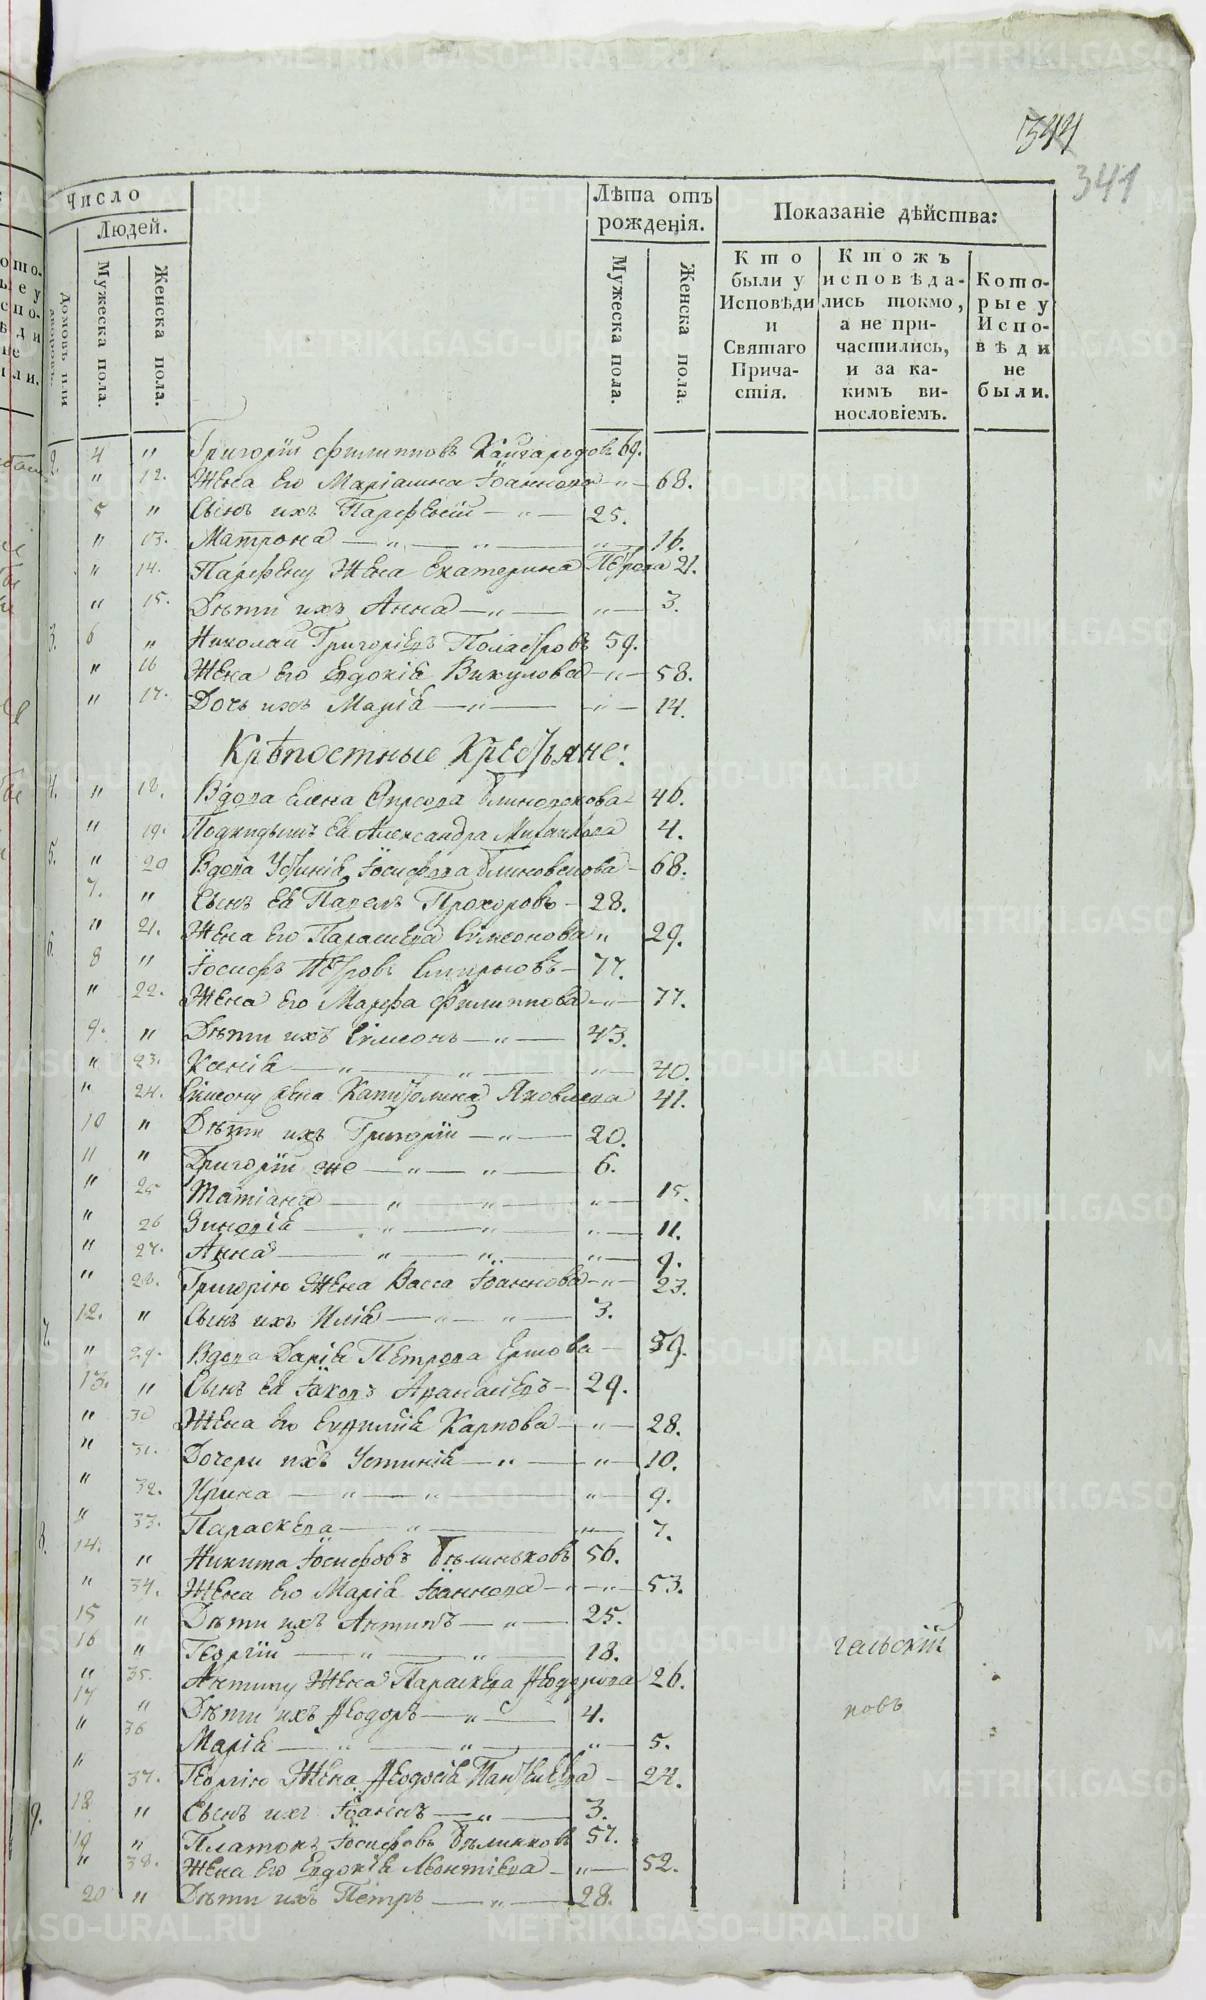 344
341
Число
Людей.
Домовъ или дворовъ.
Мужеска пола.
Женска пола.
Лѣта отъ рожденія.
Мужеска пола.
Женска пола.
Показаніе дѣйства:
Кто были у Исповѣди и Святаго Причастія.
Ктожъ исповѣдались токмо, а не причастились, и за какимъ винословіемъ.
Которые у Исповѣди не были.
2. 4 " Григорій Филипповъ Кайгородовъ 69.
" 12. Жена его Маріамна Іоаннова " 68.
5 " Сынъ ихъ Парфеній " 25.
" 13. Матрона " " " 16.
" 14. Парфену Жена Екатерина Петрова 21.
" 15. Дѣти ихъ Анна " " 3.
3. 6 " Николай Григорьевъ 59.
" 16 Жена его Евдокія Викулова " 58.
" 17. Дочь ихъ Марія " " 14.
Крѣпостные Крестьяне:
4. " 18. Вдова Елена Фирсова 46.
" 19. Подкидышъ ея Александра 4.
5. " 20 Вдова Устинія Іосифова 68.
7. " Сынъ ея Павелъ Прохоровъ 28.
" 21. Жена его Параскева Симеонова " 29.
6. 8 " Іосифъ Петровъ 77.
" 22. Жена его Марфа Филиппова " 77.
9. " Дѣти ихъ Симеонъ " 43.
" 23. Ксенія " " " 40.
" 24. Симеону жена Капитолина Яковлева 41.
10 " Дѣти ихъ Григорій " 20.
11 " Григорій же " " 6.
" 25 Татіана " " " 15.
" 26 Зиновія " " " 11.
" 27. Анна " " " 9.
" 28. Григорію Жена Васса Іоаннова " 23.
12. " Сынъ ихъ Илія " " 3.
7. " 29. Вдова Дарія Петрова Ершова 59.
13. " Сынъ ея Іаковъ Афанасьевъ 29.
" 30 Жена его Евфимія Карпова " 28.
" 31. Дочери ихъ Устинія " " 10.
" 32. Ирина " " " 9.
" 33. Параскева " " 7.
8. 14. " Никита Іосифовъ Бѣлиньковъ 56.
" 34. Жена его Марія Іоаннова " " 53.
15 " Дѣти ихъ Антипъ " 25.
16 " Георгій " " 18.
" 35. Антипу Жена Параскева Ѳеодорова 26.
17 " Дѣти ихъ Ѳеодоръ " 4.
" 36 Марія " " " 5.
" 37. Георгію Жена Ѳеодосія 24.
18 " Сынъ ихъ Іоаннъ " 3.
9. 19 " Платонъ Іосифовъ 57.
" 38. Жена его Евдокія Леонтіева " 52.
20 " Дѣти ихъ Петръ " 28.
гельскій
повъ
METRIKI.GASO-URAL.RU